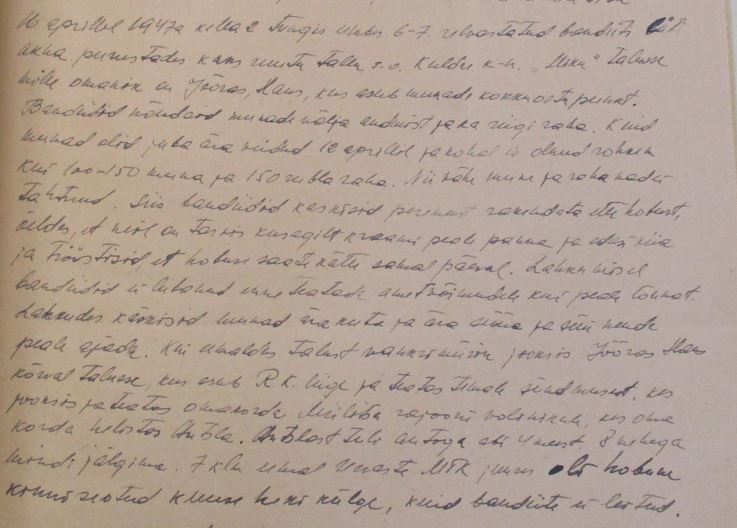 16 aprillil 1947a kella 2 tungis umbes 6-7. relvastatud bandiiti läbi
akna purustades kaks ruutu tallu s.o. Kuldre k-n. „Miku" talusse
mille omanik on Jõõras, Hans, kus asub munade kokkuostu punkt.
Bandiidid nõudsid munade välja andmist ja ka riigi raha. Kuid
munad olid juba ära viidud 12 aprillil ja kohal ei olnud rohkem
kui 100-150 muna ja 150 rubla raha. Nii vähe mune ja raha nad ei
tahtnud. Siis bandiidid käskisid peremeest rakendada ette hobust,
öeldes, et neil on tarvis kusagilt kraami peale panna ja edasi viia
ja trööstisid, et hobuse saate kätte samal päeval. Lahkumisel
bandiidid ei lubanud enne teatada ametvõimudele kui peale lõunat.
Lahkudes käskisid munad ära keeta ja ära süüa ja süü nende
peale ajada. Kui eemaldus talust vankrimürin jooksis Jõõras Hans
kõrval talusse, kus asub R.K. liige ja teatas temale sündmusest, kes
jooksis ja teatas omakorda Miilitsa rajooni volinikule, kes oma
korda helistas Antsla. Antslast tuli autoga abi 4 meest 8 mehega
mindi jälgima. 7 klm eemal Urvaste MTK juures oli hobune
kinni seotud kuuse heki külge, kuid bandiite ei leitud.